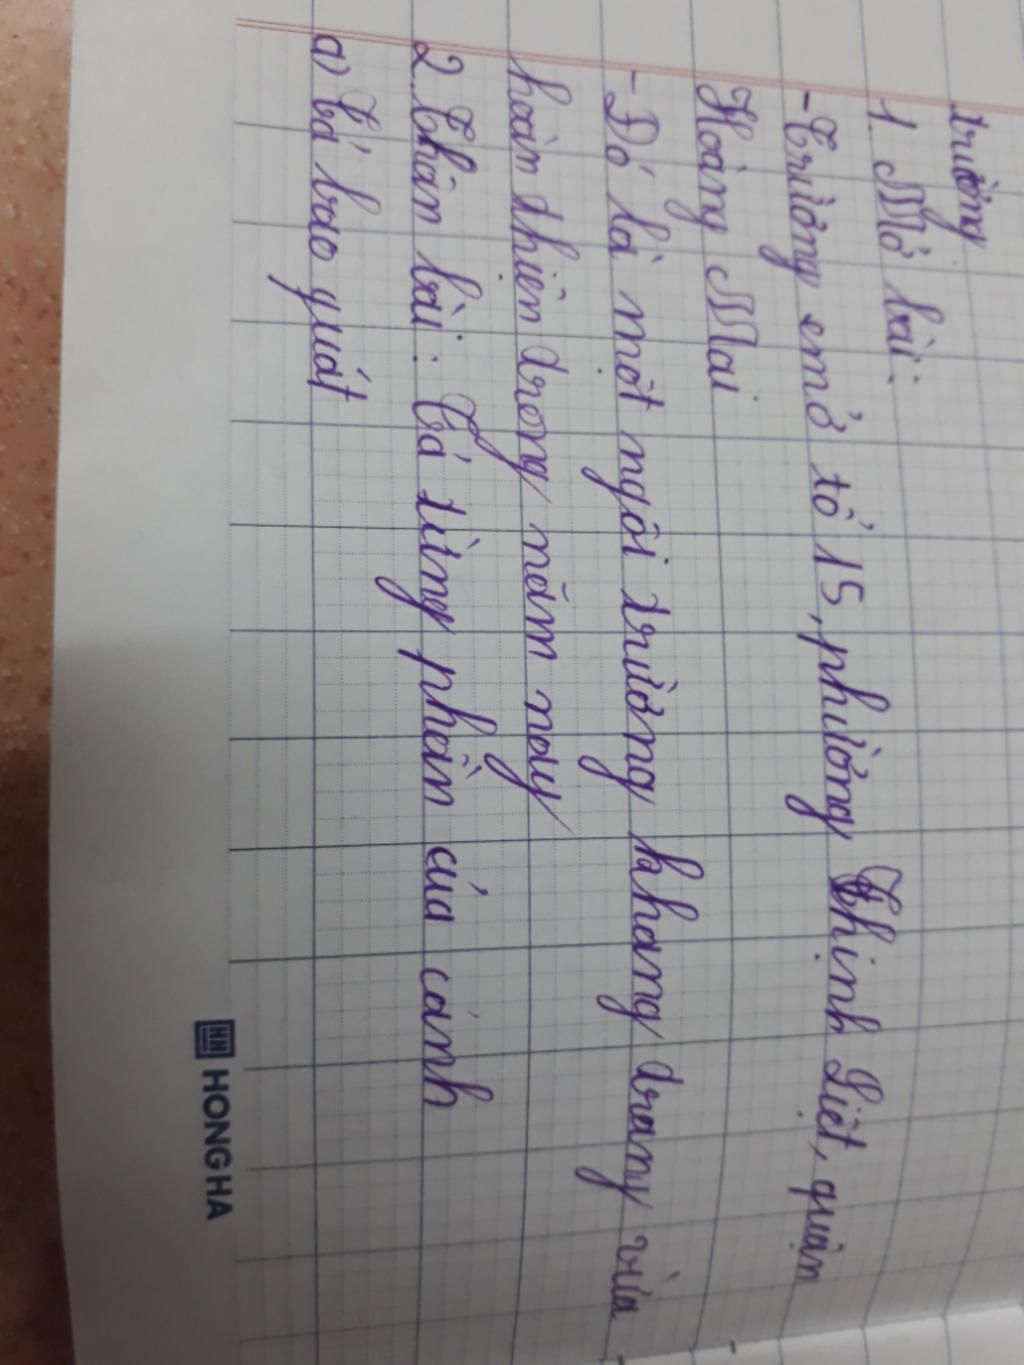 trường
1. Mở bài:
- Trường em ở tổ 15, phường Thịnh Liệt, quận
Hoàng Mai
- Đó là một ngôi trường khang trang vừa
hoàn thiện trong năm nay
2. Thân bài: Tả từng phần của cảnh
a) Tả bao quát
HONG HA